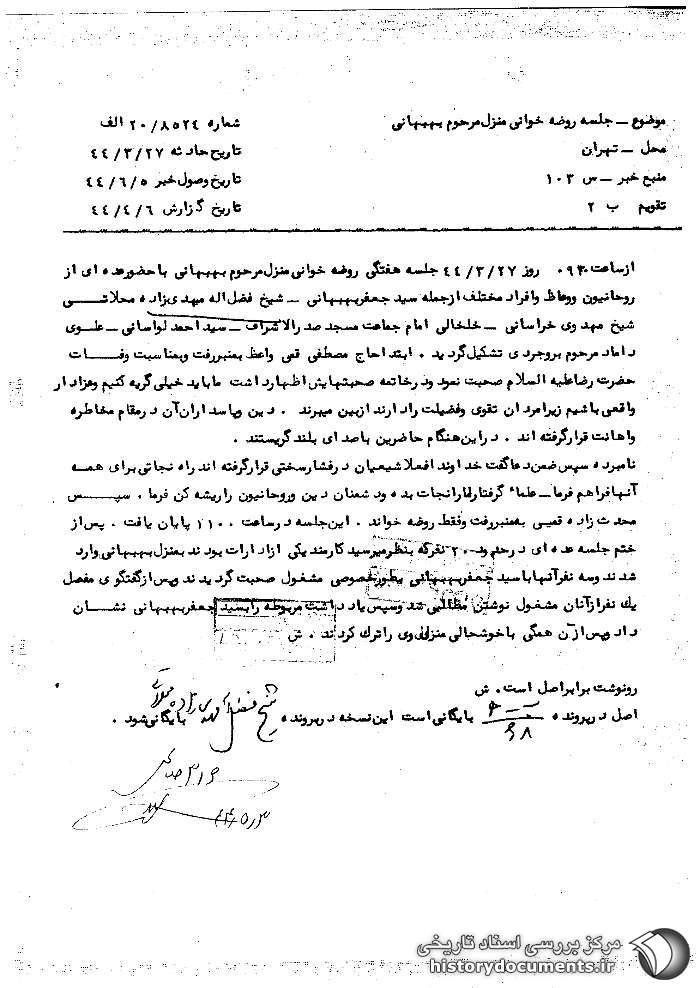 موضوع ــ جلسه روضه خوانی منزل مرحوم بهبهانی
محل ــ تهران
منبع خبر ــ س ۱۰۳
تقویم ب ۲
شماره ۲۰/۸۵۲۴ الف
تاریخ حادثه ۴۴/۳/۲۷
تاریخ وصول خبر ۴۴/۶/۵
تاریخ گزارش ۴۴/۴/۶
ازساعت ۰۹۳۰ روز ۴۴/۳/۲۷ جلسه هفتگی روضه خوانی منزل مرحوم بهبهانی با حضور عده ای از
روحانیون ووعاظ وافراد مختلف ازجمله سید جعفربهبهانی ــ شیخ فضل اله مهدی زاده محلاتی
شیخ مهدوی خراسانی ــ خلخالی امام جماعت مسجد صدرالاشراف ــ سید احمد لواسانی ــ علوی
داماد مرحوم بروجردی تشکیل گردید . ابتدا حاج مصطفی قمی واعظ بمنبررفت وبمناسبت وفات
حضرت رضا علیه السلام صحبت نمود ودرخاتمه صحبتهایش اظهارداشت ماباید خیلی گریه کنیم وعزادار
واقعی باشیم زیرامردان تقوی وفضیلت را دارند ازبین میبرند . دین وپاسداران آن درمقام مخاطره
واهانت قرارگرفته اند . دراین هنگام حاضرین باصدای بلند گریستند .
نامبرده سپس ضمن دعا گفت خداوندا فعلا شیعیان درفشارسختی قرارگرفته اند راه نجاتی برای همه
آنها فراهم فرما ــ علماء گرفتارمارانجات بده ودشمنان دین وروحانیون راریشه کن فرما . سپس
محدث زاده قمی بمنبررفت وفقط روضه خواند . این جلسه درساعت ۱۱۰۰ پایان یافت . پس از
ختم جلسه عده ای درحدود ۲۰ نفرکه بنظرمیرسید کارمند یکی ازادارات بودند بمنزل بهبهانی وارد
شدند وسه نفرآنها با سید جعفربهبهانی بطورخصوصی مشغول صحبت گردیدند وپس ازگفتگوی مفصل
یك نفرازآنان مشغول نوشتن مطالبی شد وسپس یادداشت مربوطه رابسید جعفربهبهانی نشان
داد وپس ازآن همگی با خوشحالی منزل وی راترك کردند . ش
رونوشت برابراصل است . ش
اصل درپرونده بایگانی است این نسخه درپرونده شیخ فضل اله مهدی زاده محلاتی بایگانی شود .
۶۸
۴۴/۵/۳
مرکز بررسی اسناد تاریخی
historydocuments.ir